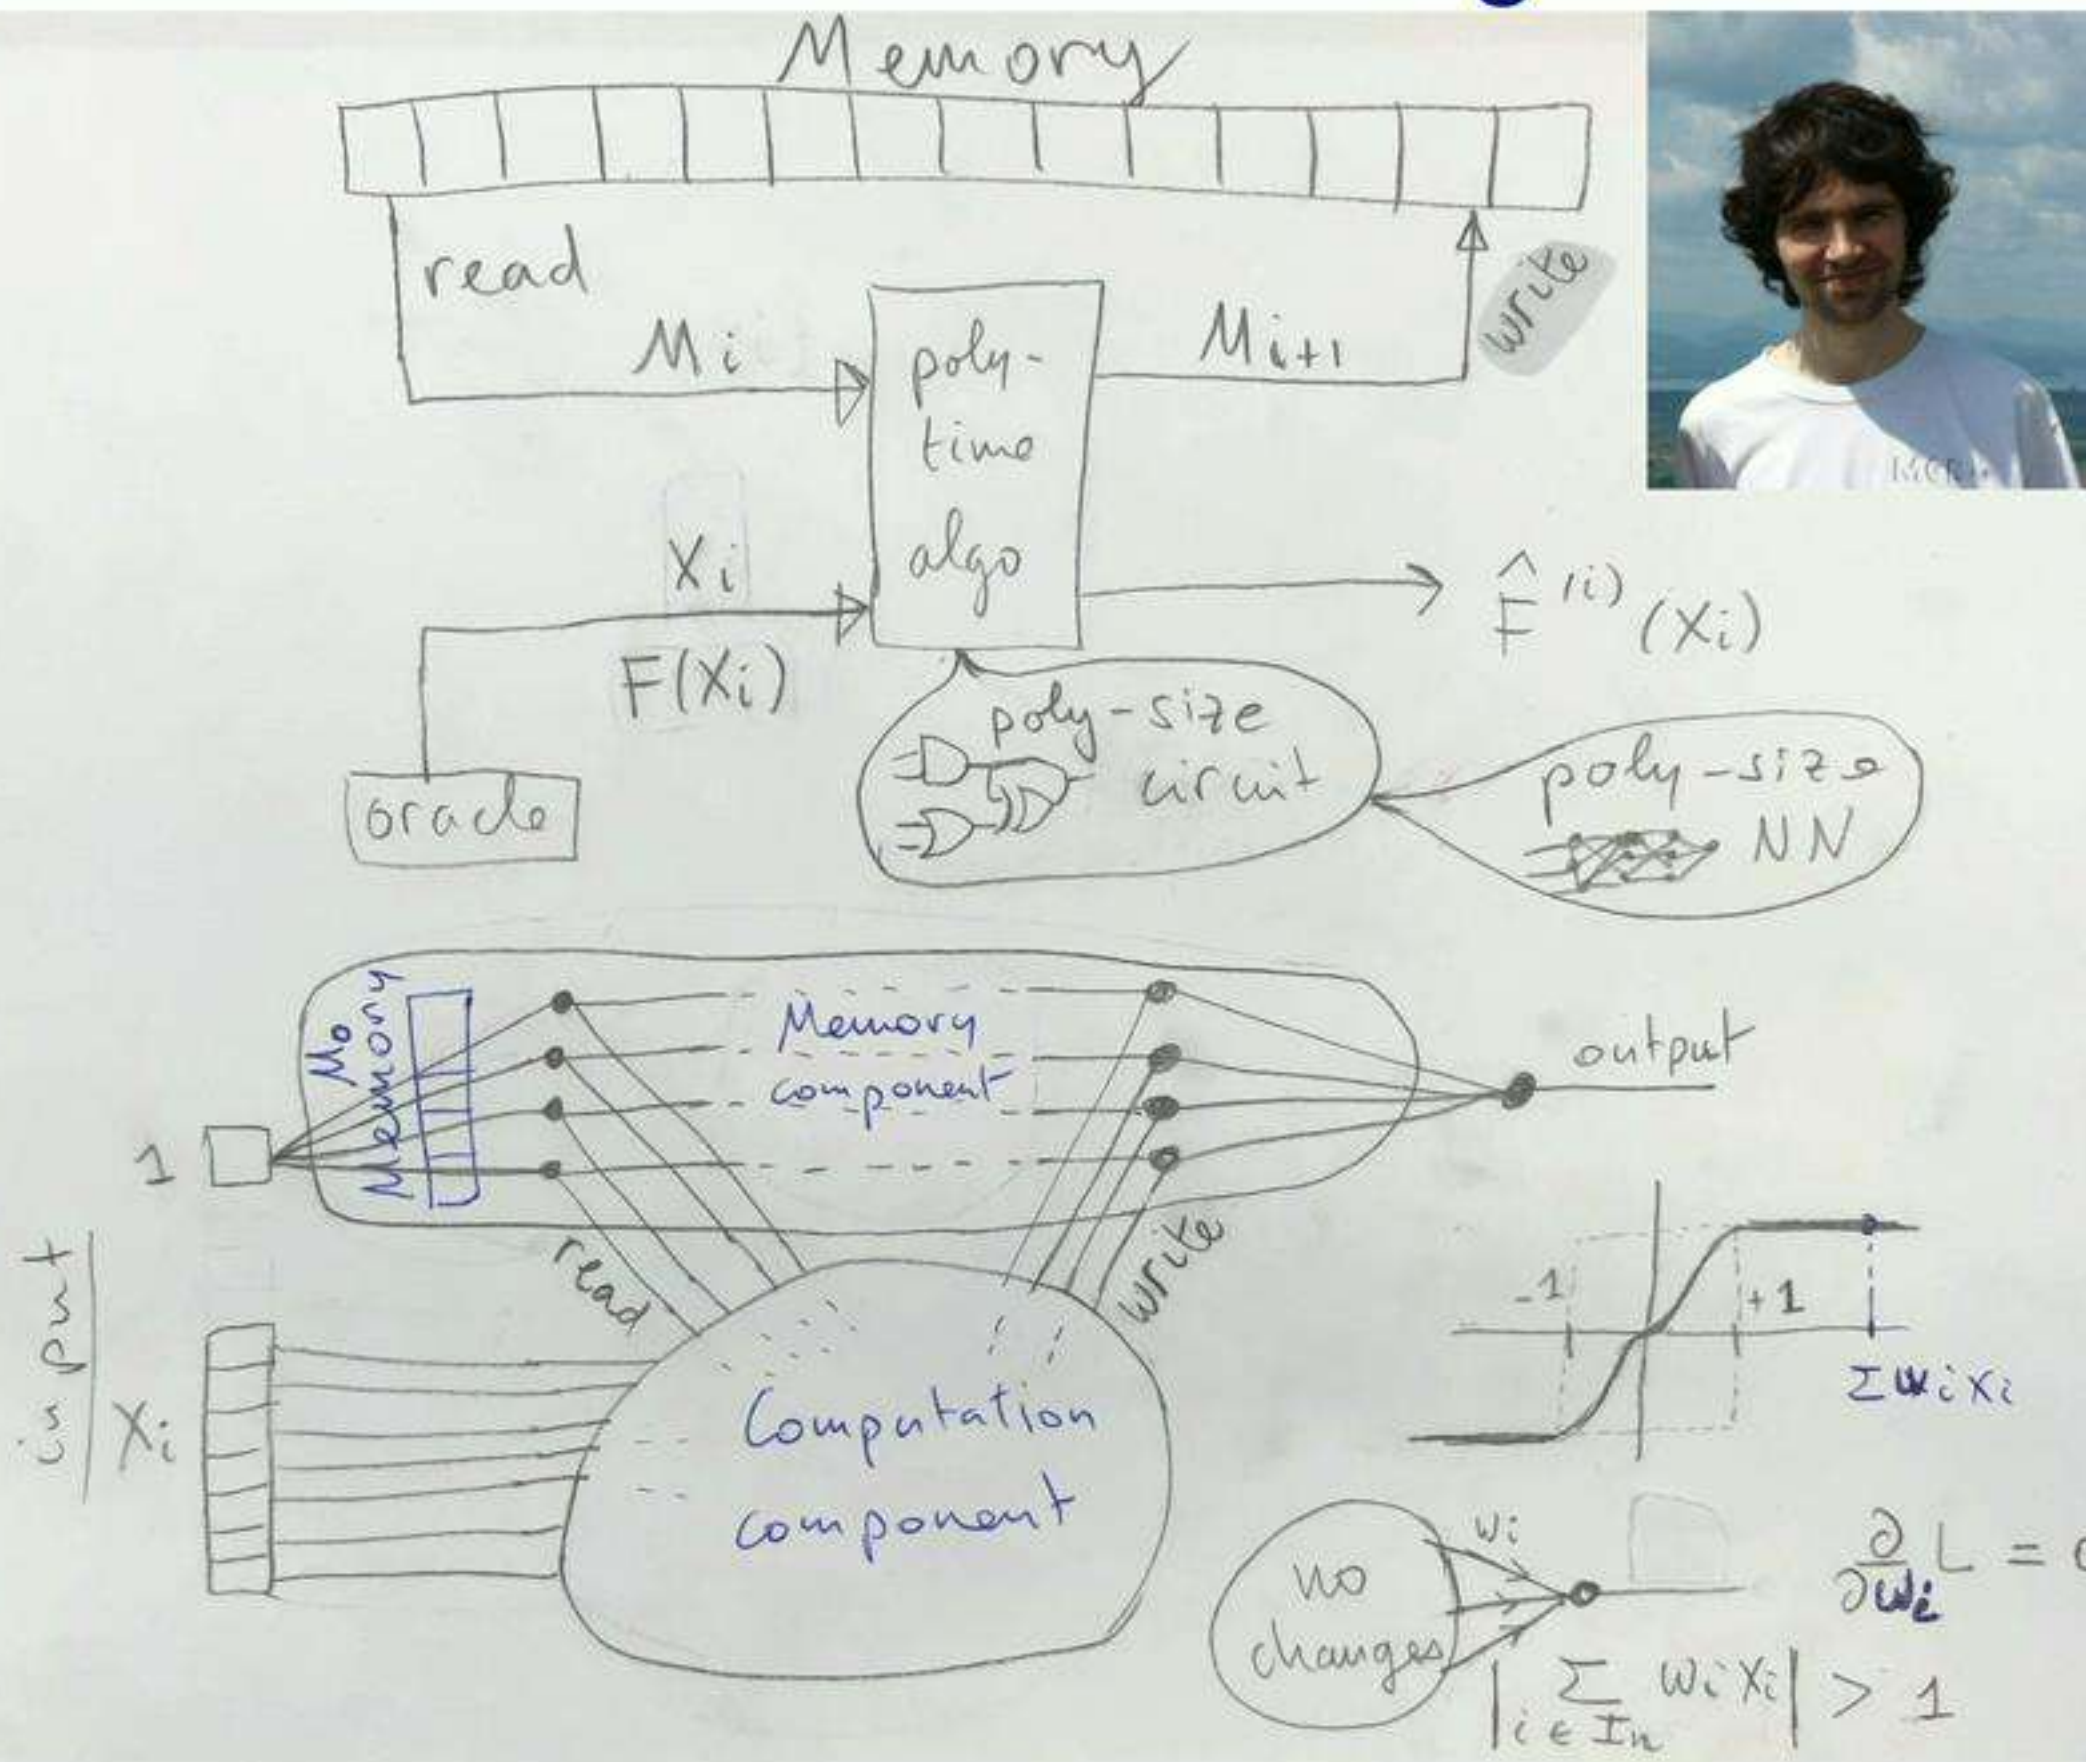 Memory
read
write
Mi
Mi+1
poly-
time
algo
Xi
F(Xi)
F̂(i)(Xi)
oracle
poly-size
circuit
poly-size
NN
M0
Memory
Memory
component
output
1
read
write
input
Xi
Computation
component
-1
+1
Σwixi
no
changes
wi
∂/∂wi L =
|Σi∈In wixi| > 1